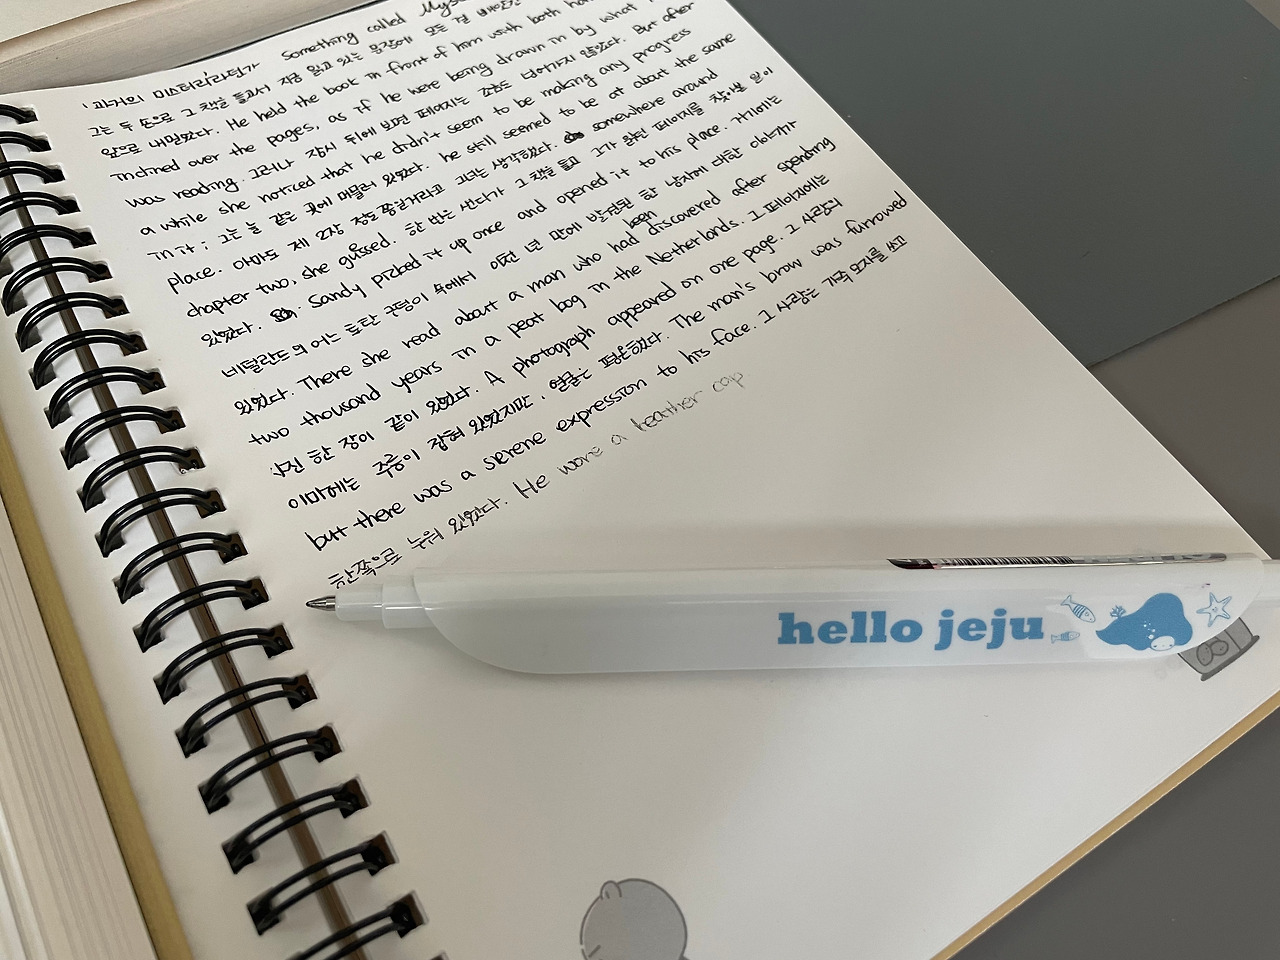 '과거의 미스터리'라던가 Something called
그는 두 손으로 그 책을 들고서 지금 읽고 있는 문장에 모든 걸
앞으로 내밀었다. He held the book in front of him with both
inclined over the pages, as if he were being drawn in by what
was reading. 그러나 잠시 뒤에 보면 페이지는 조금도 넘어가지 않았다. But after
a while she noticed that he didn't seem to be making any progress
in it; 그는 늘 같은 곳에 머물러 있었다. he still seemed to be at about the same
place. 아마도 제 2장 정도쯤일거라고 그녀는 생각했다. somewhere around
chapter two, she guessed. 한 번은 샌디가 그 책을 들고 그가 읽던 페이지를 찾아본 일이
있었다. Sandy picked it up once and opened it to his place. 거기에는
네덜란드의 어느 토탄 구덩이 속에서 이천 년 만에 발견된 한 남자에 대한 이야기가
있었다. There she read about a man who had been discovered after spending
two thousand years in a peat bog in the Netherlands. 그 페이지에는
사진 한 장이 같이 있었다. A photograph appeared on one page. 그 사람의
이마에는 주름이 잡혀 있었지만, 얼굴은 평온했다. The man's brow was furrowed
but there was a serene expression to his face. 그 사람은 가죽 모자를 쓰고
한쪽으로 누워 있었다. He wore a leather cap
hello jeju